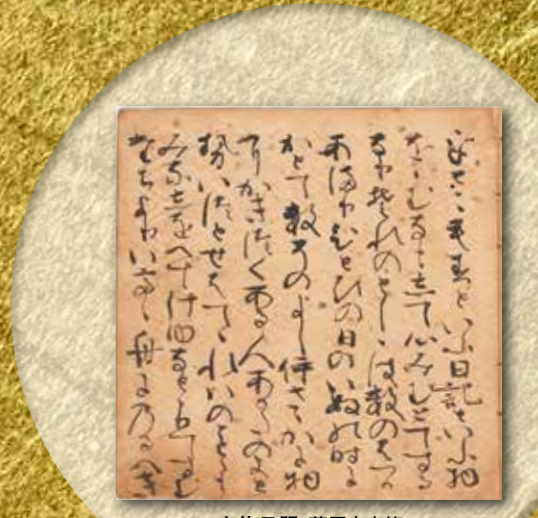 をとこもすといふ日記といふ物
をむなもして心みむとてする
なりそれのとしのはすのはつか
あまりひとひの日のいぬの時に
かとてすそのよしいさゝか物
にかきつくある人あかたのよと
せいつとせはてゝれいのことゝも
みなしをへてけゆなととりてすむ
たちよりいてゝ舟にのるへき